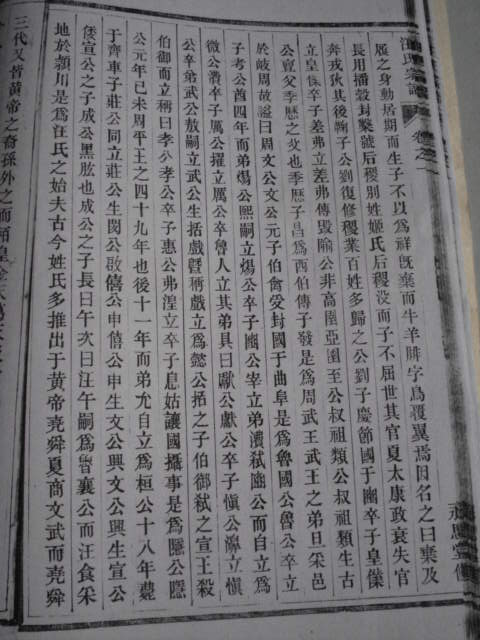 汪氏宗譜 卷之一
履之身動居期而生子不以爲祥旣棄而牛羊腓字鳥覆翼焉因名之曰棄及
長用播穀封棄號后稷別姓姬氏后稷没而子不屈世其官夏太康政衰失官
奔戎狄其後鞠子公劉復修稷業百姓多歸之公劉子慶節國于豳卒子皇僕
立皇僕卒子差弗立差弗傳毀隃公非高圉亞圉至公叔祖類公叔祖類生古
公亶父季歷之父也季歷子昌爲西伯傳子發是爲周武王武王之弟旦采邑
於岐周故謚曰周文公文公元子伯禽受封國于曲阜是爲魯國公魯公卒立
子考公酋四年而弟煬公熙嗣立煬公卒子幽公宰立弟潰弑幽公而自立爲
微公潰卒子厲公擢立厲公卒魯人立其弟具曰獻公獻公卒子愼公濞立愼
公卒弟武公敖嗣立武公生括戲曁稱戲立爲懿公括之子伯御弑之宣王殺
伯御而立稱曰孝公孝公卒子惠公弗湟立卒子息姑讓國攝事是爲隱公隱
公元年己未周平王之四十九年也後十一年而弟允自立爲桓公十八年薨
于齊車子莊公同立莊公生閔公啟僖公申僖公申生文公興文公興生宣公
倭宣公之子成公黑肱也成公之子長曰午次曰汪午嗣爲魯襄公而汪食采
地於潁川是爲汪氏之始夫古今姓氏多推出于黃帝堯舜夏商文武而堯舜
三代又皆黃帝之裔孫外之而